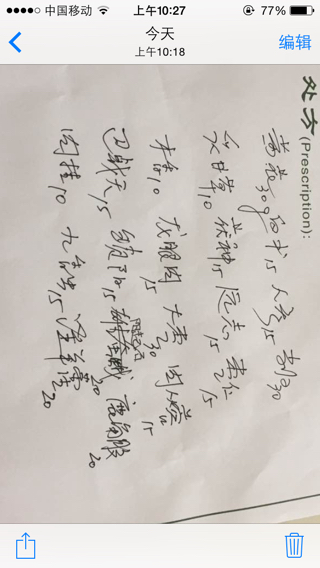 中国移动 上午10:27 77%
今天
上午10:18
编辑
处方(Prescription):
黄芪30g 白术15 人参15 当归30
炙甘草10 茯神15 远志15 枣仁15
木香10 龙眼肉15 大枣30 肉苁蓉15
巴戟天15 锁阳15 20 20
肉桂10 九香虫15 20